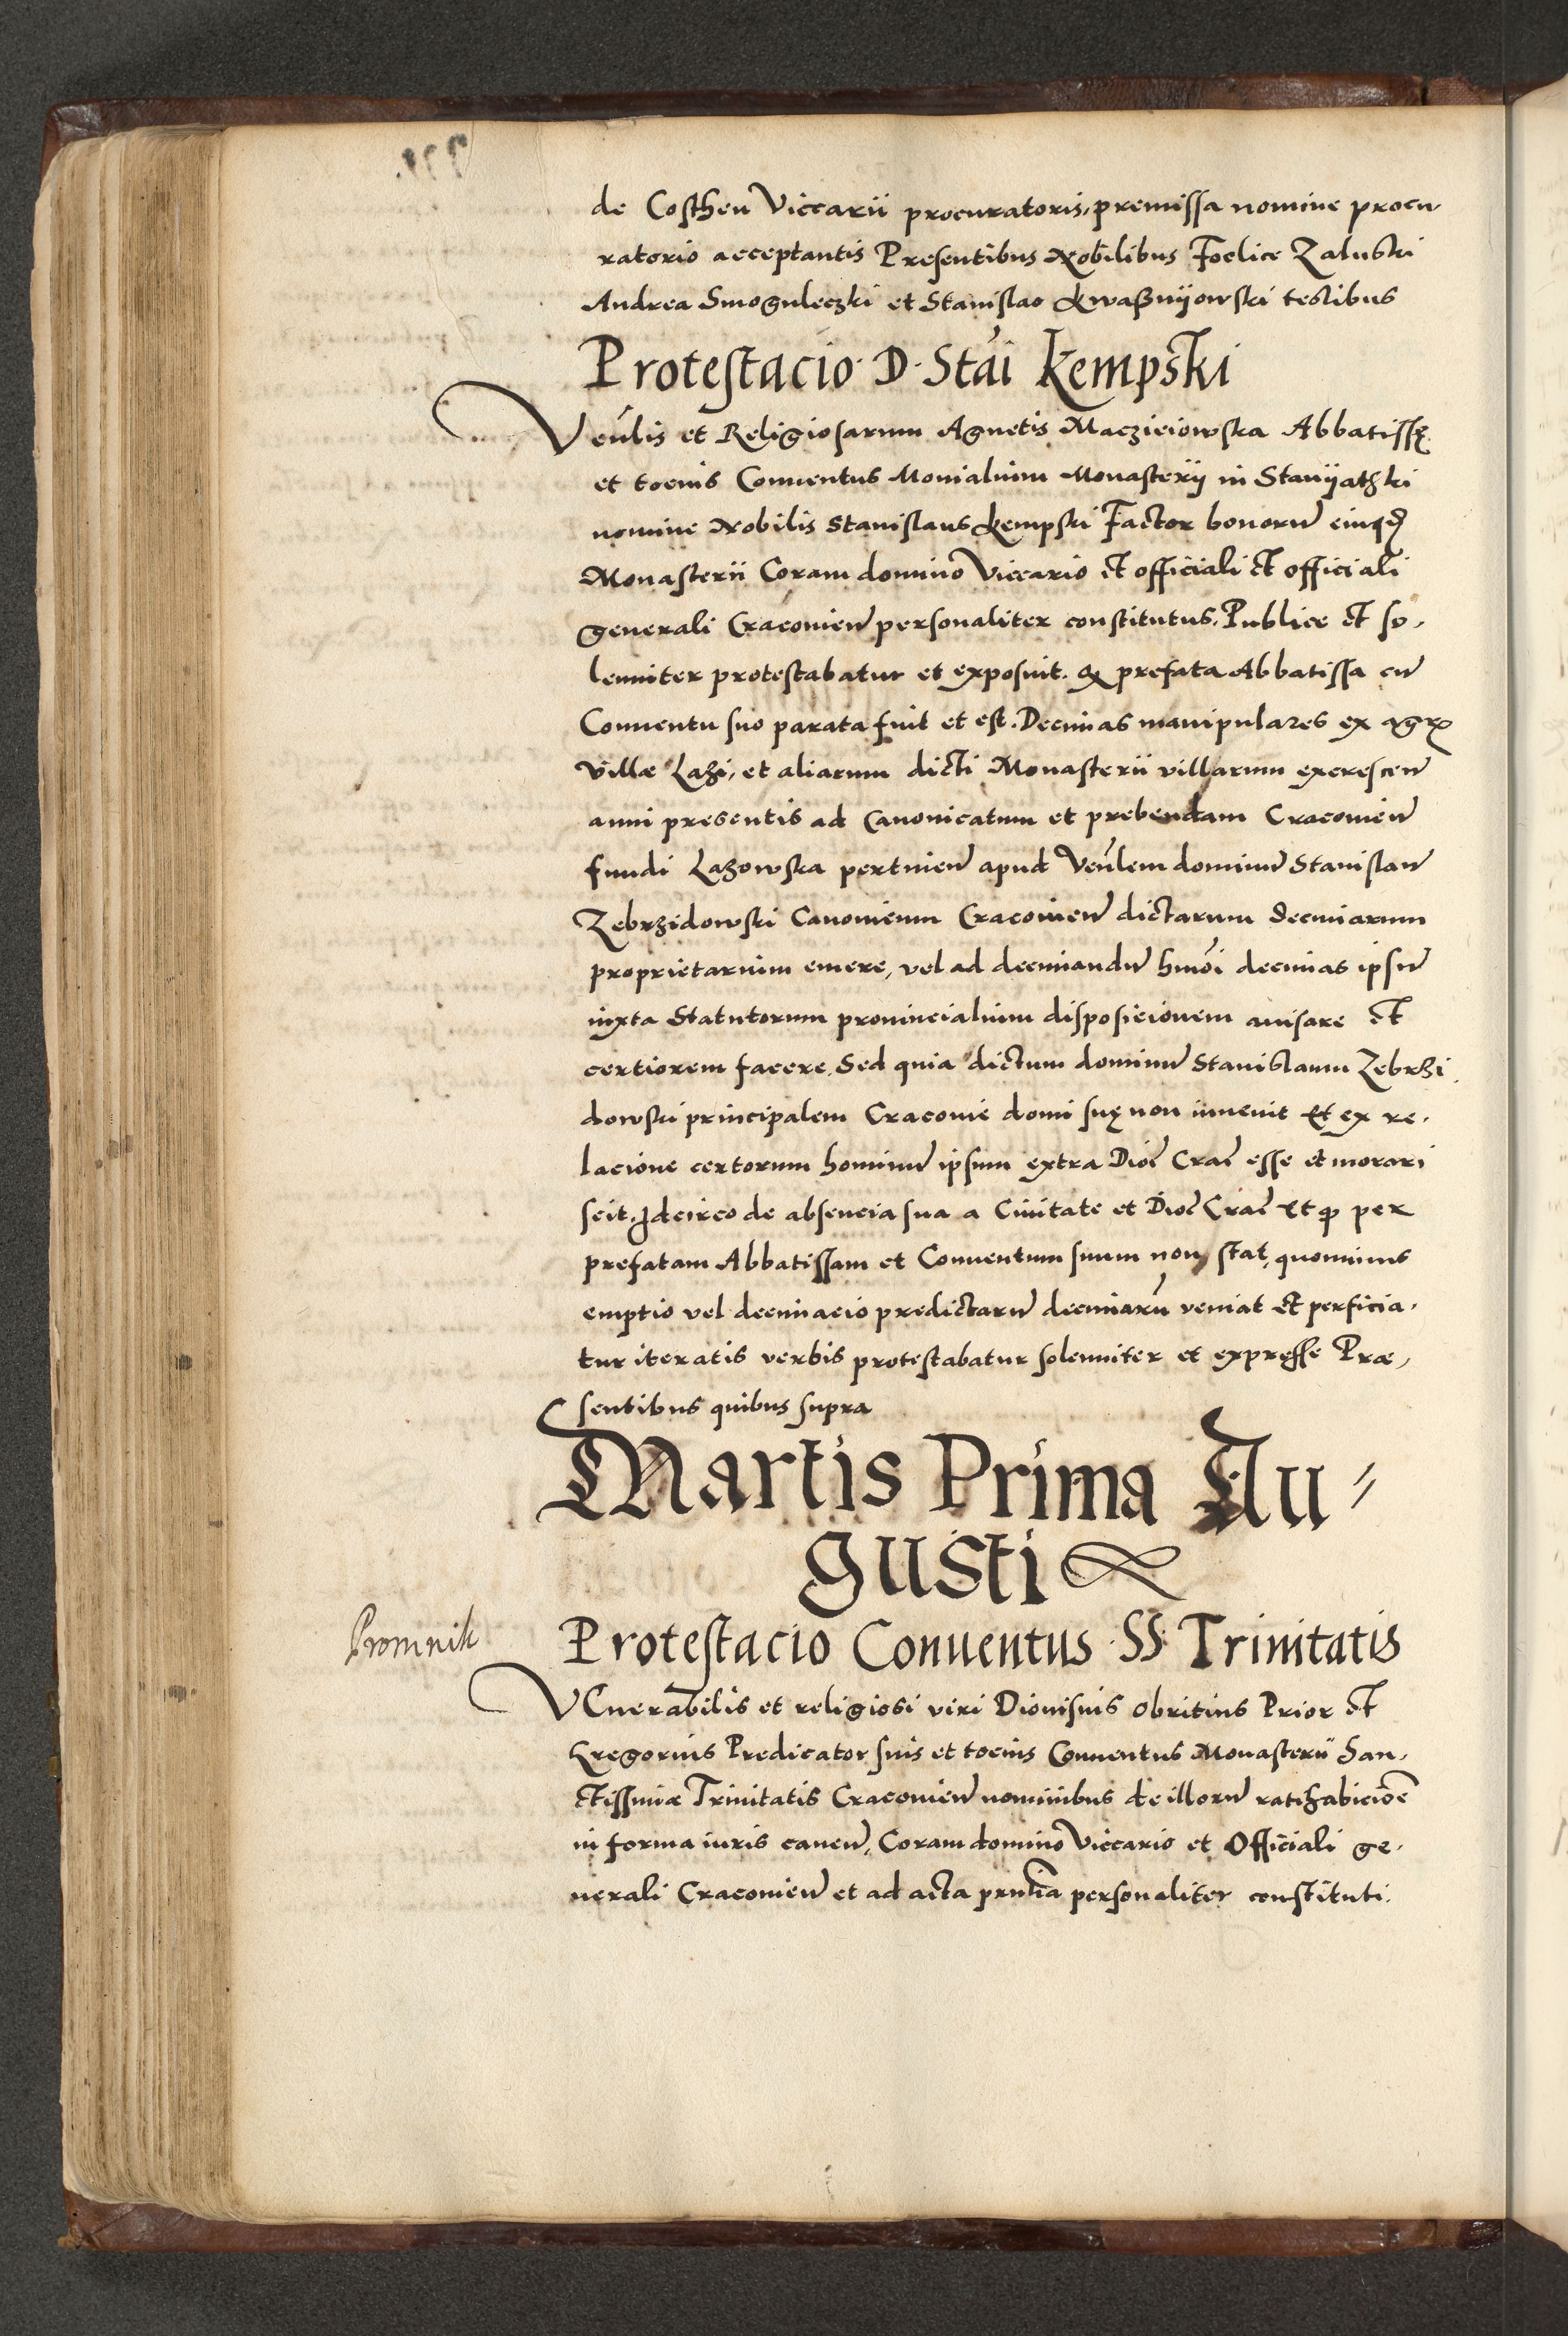 de Costhen Viccarii procuratoris, premissa nomine procu-
ratorio acceptantis Presentibus Nobilibus Foelice Zaluski
Andrea Smoguleczki et Stanislao Kwaßnijowski testibus
Protestacio D. Stai Kempski
Venlis et Religiosarum Agnetis Macziciowska Abbatissę
et tocius Conuentus Monialium Monasterij in Stanijathki
nomine Nobilis Stanislaus Kempski Factor bonorum eiusd
Monasterii Coram domino Viccario et officiali et officiali
generali Cracovien personaliter constitutus. Publice et so-
lenniter protestabatur et exposuit. Q prefata Abbatissa cum
Conuentu suo parata fuit et est. Decimas manipulares ex agris
villæ Lazi, et aliarum dicti Monasterii villarum excrescen
anni presentis ad Canonicatum et prebendam Cracovien
fundi Lazowska pertinen apud Venlem dominum Stanislaum
Zebrzidowski Canonicum Cracovien dictarum decimarum
proprietarium emere, vel ad decimandum hmoi decimas ipsum
iuxta Statutorum prouincialium disposicionem auisare et
certiorem facere. Sed quia dictum dominum Stanislaum Zebrzi
dowski principalem Cracovie domi suę non inuenit Et ex re-
lacione certorum hominum ipsum extra Dioc Crac esse et morari
scit. Idcirco de absencia sua a Ciuitate et Dioc Crac Et q per
prefatam Abbatissam et Conuentum suum non stat, quominus
emptio vel decimacio predictarum decimarum veniat et perficia-
tur iteratis verbis protestabatur solenniter et expresse Præ-
sentibus quibus supra
Martis Prima Au-
gusti
Promnik
Protestacio Conuentus SS Trinitatis
VEnerabilis et religiosi viri Dionisius Obritius Prior et
Gregorius Predicator suis et tocius Conuentus Monasterii San-
ctissimæ Trinitatis Cracovien nominibus de illorum ratihabicioe
in forma iuris cauen, Coram domino Viccario et Officiali ge-
nerali Cracovien et ad acta prntia personaliter constituti.